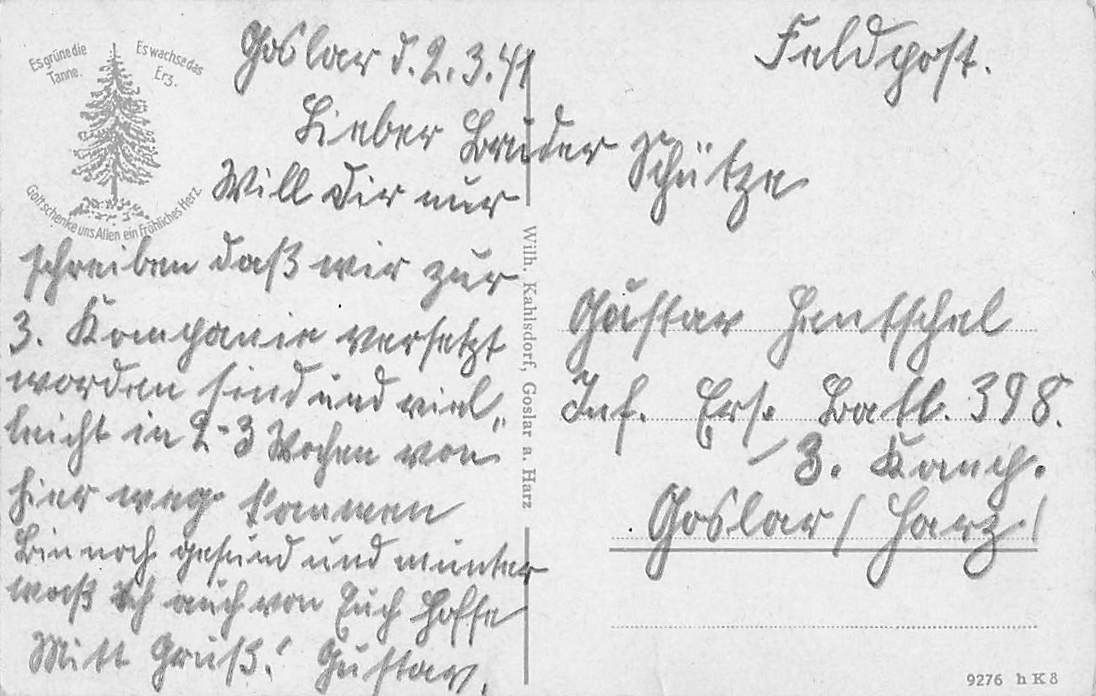 Es grüne die
Tanne.
Es wachse das
Erz.
Gott schenke uns Allen ein fröhliches Herz
Goslar d. 2.3.41
Lieber Bruder
Will Dir nur
schreiben daß wir zur
3. Kompanie versetzt
worden sind und viel„
leicht in 2-3 Wochen von
hier weg kommen
Bin noch gesund und munter
waß ich auch von Euch hoffe
Mitt Gruß! Gustav.
Wilh. Kahlsdorf, Goslar a. Harz
Feldpost.
Schütze
Gustav Hentschel
Inf. Ers. Batl. 398.
3. Komp.
Goslar / Harz /
9276 h K 8